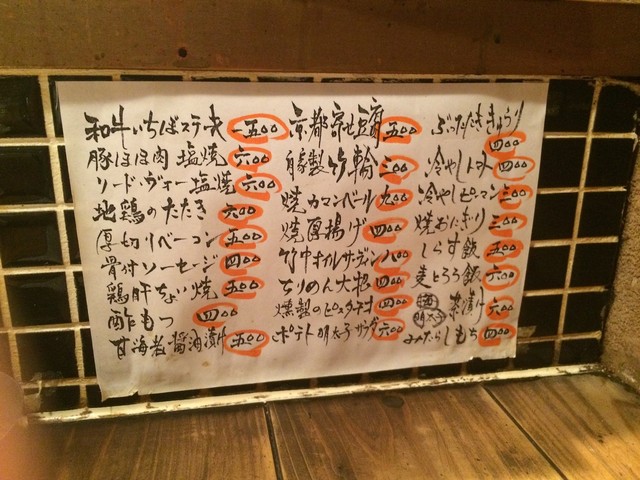 和牛いちばステーキ 一五〇〇
豚ほほ肉 塩焼 六〇〇
ソード・ヴォー塩焼 六〇〇
地鶏のたたき 六〇〇
厚切りベーコン 五〇〇
骨付ソーセージ 四〇〇
鶏肝ちょい焼 五〇〇
酢もつ 四〇〇
甘海老醤油漬け 五〇〇
京都寄せ豆腐 五〇〇
自家製竹輪 三〇〇
焼カマンベール 九〇〇
焼厚揚げ 四〇〇
竹中オイルサーディン 八〇〇
ちりめん大根 四〇〇
燻製のピスタチオ 四〇〇
ポテト明太子サラダ 六〇〇
ぶったたききゅうり 四〇〇
冷やしトマト 四〇〇
冷やしピーマン 三〇〇
焼おにぎり 三〇〇
しらす飯 五〇〇
麦とろろ飯 六〇〇
明太子 茶漬け 六〇〇
みたらしもち 四〇〇